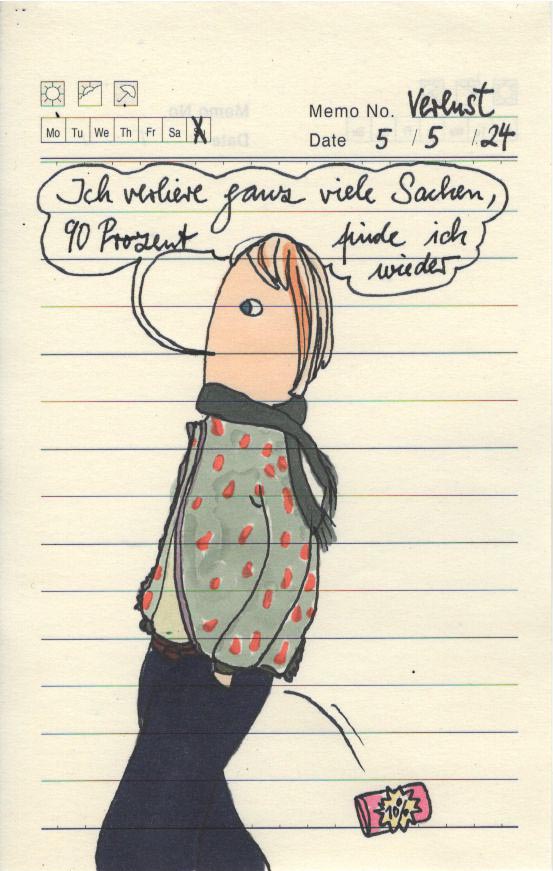 Memo No. Verlust
Mo Tu We Th Fr Sa Su
Date 5 / 5 / 24
Ich verliere ganz viele Sachen,
90 Prozent finde ich
wieder
10%